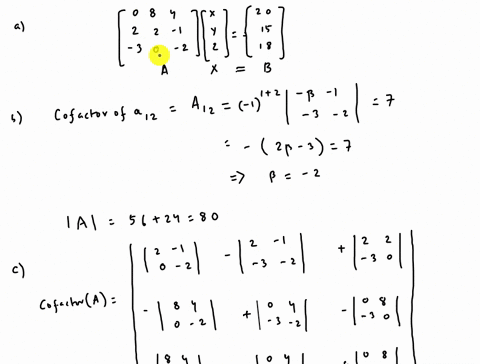 a) [ 0 8 4 ; 2 2 -1 ; -3 0 -2 ] [ x ; y ; z ] = [ 20 ; 15 ; 18 ]
A X = B
b) Cofactor of a12 = A12 = (-1)^1+2 | -β -1 ; -3 -2 | = 7
= -(2β-3) = 7
=> β = -2
|A| = 56+24 = 80
c) Cofactor(A) = | | 2 -1 ; 0 -2 | - | 2 -1 ; -3 -2 | + | 2 2 ; -3 0 |
- | 8 4 ; 0 -2 | + | 0 4 ; -3 -2 | - | 0 8 ; -3 0 |
| 8 4 | 0 4 | 0 8 |